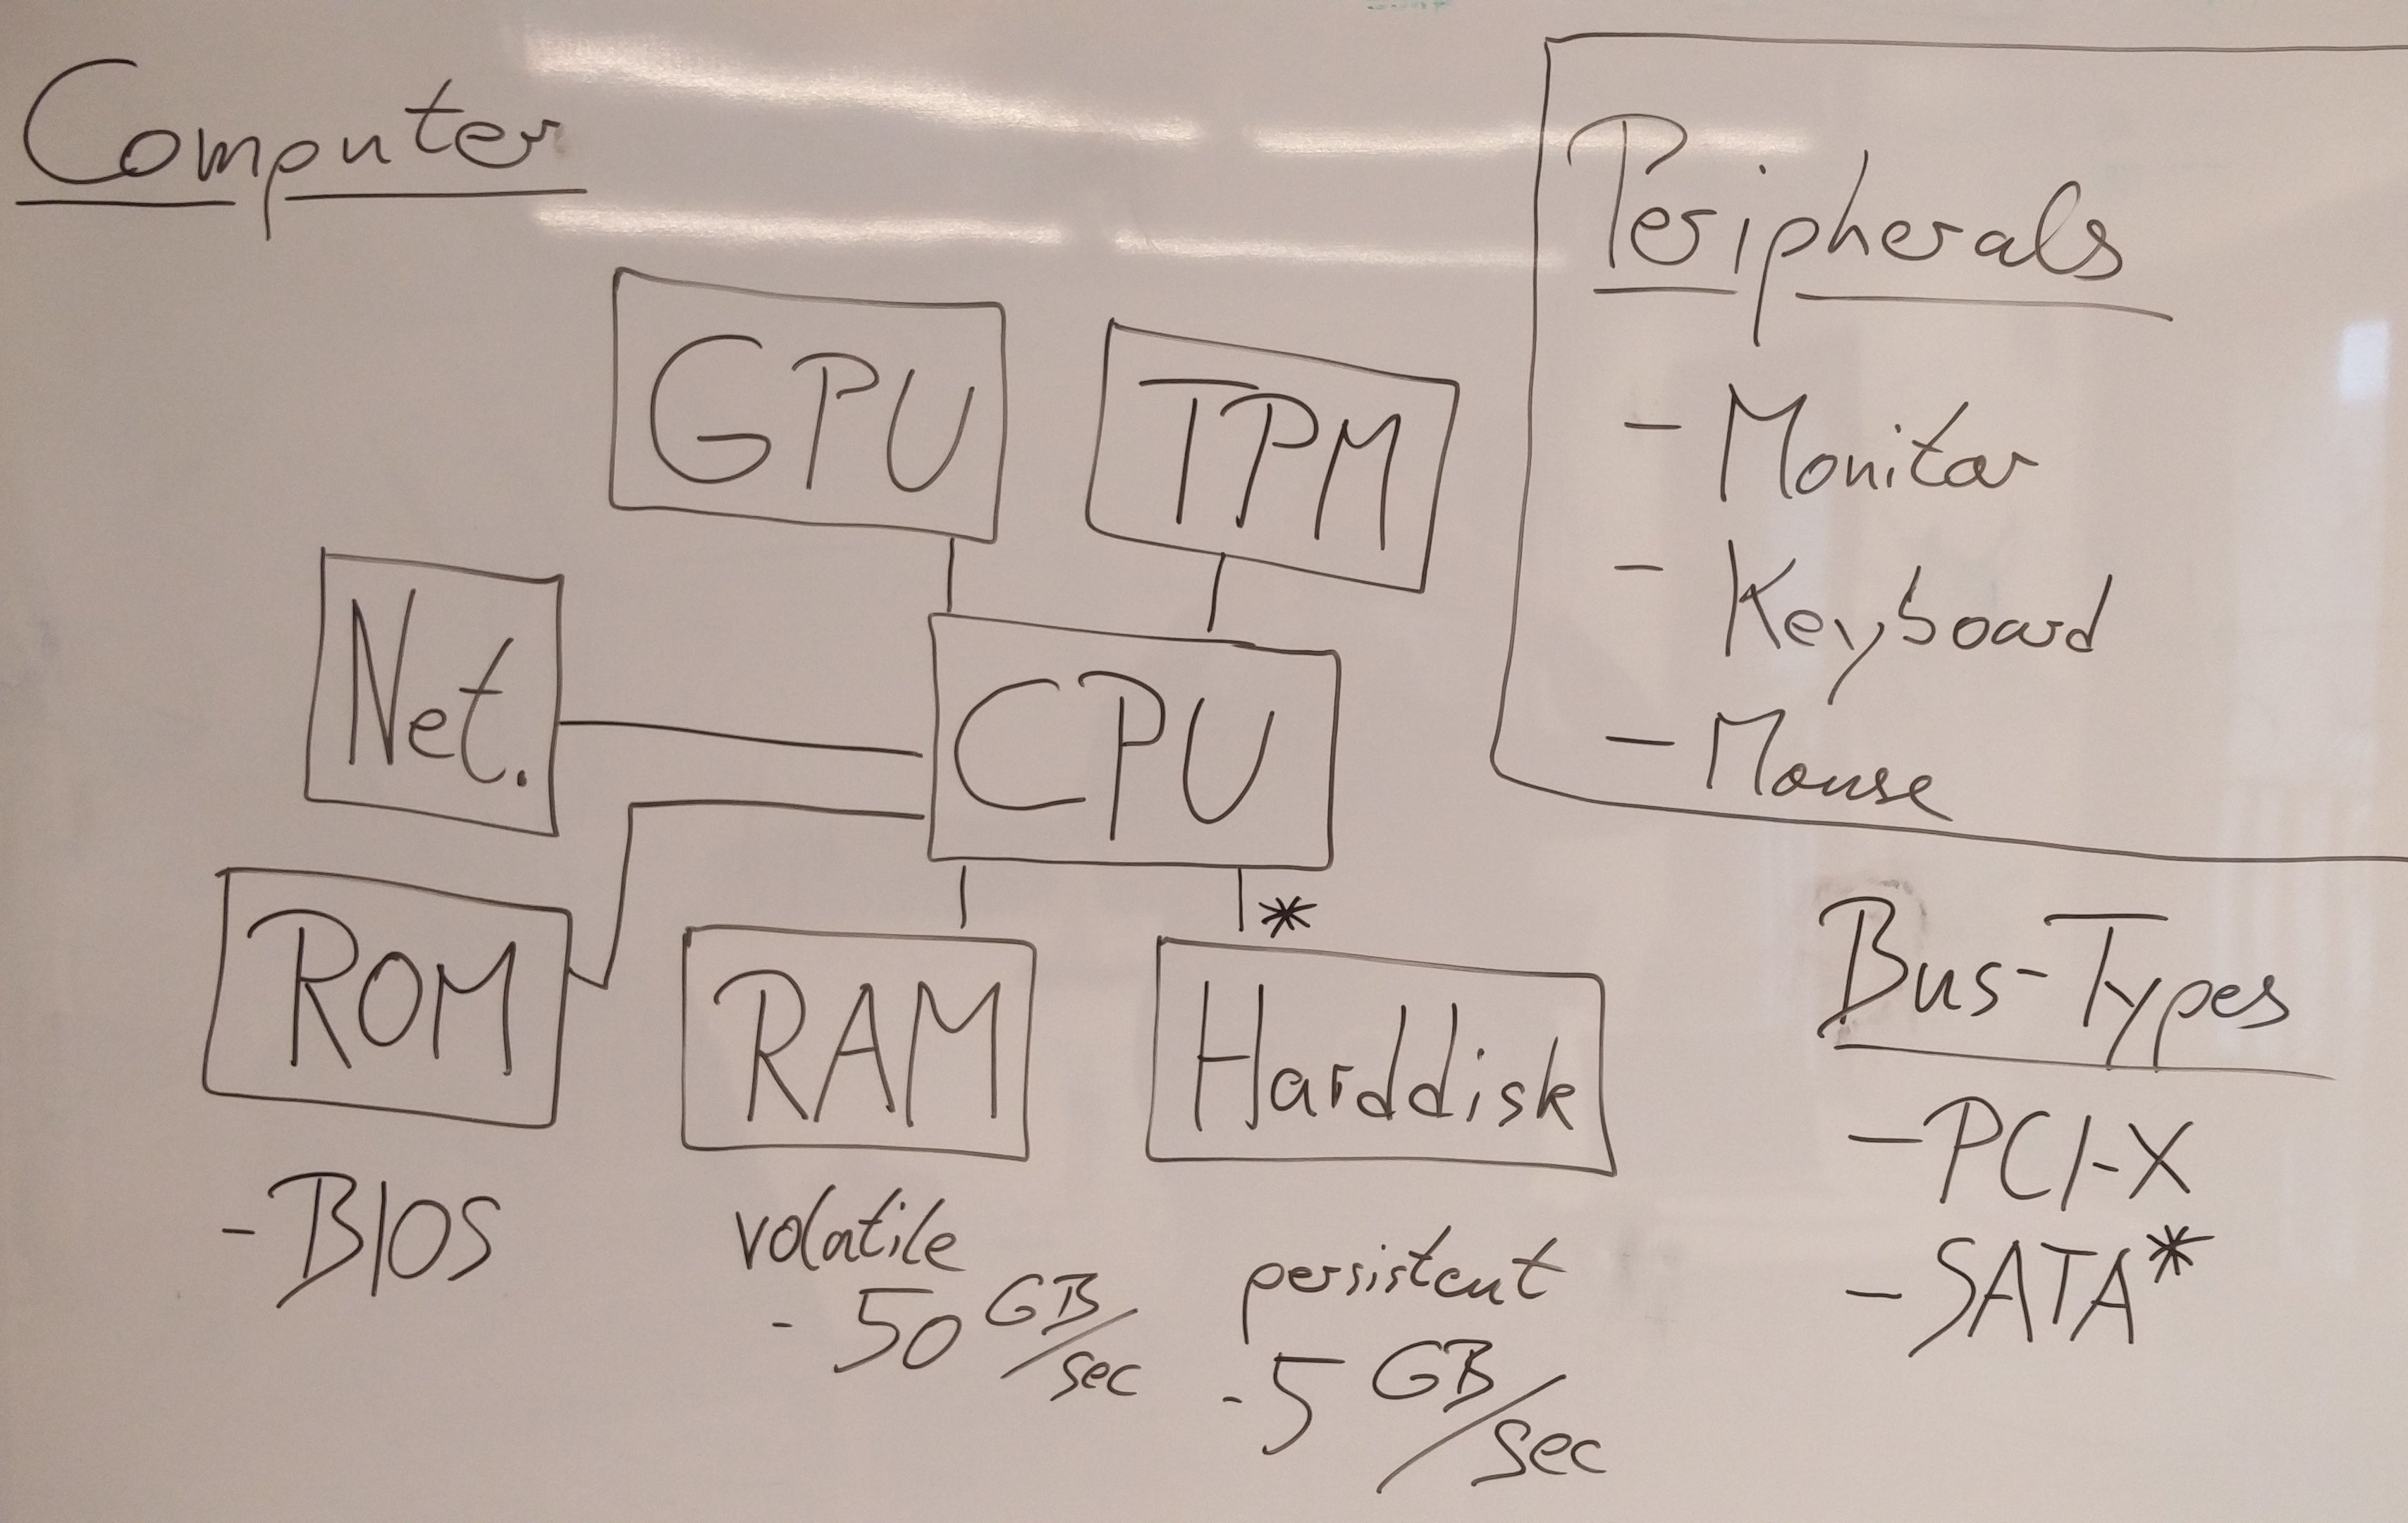 Computer
GPU
TPM
Net.
CPU
ROM
RAM
Harddisk
- BIOS
volatile
- 50 GB/sec
persistent
- 5 GB/sec
Peripherals
- Monitor
- Keyboard
- Mouse
Bus-Types
- PCI-X
- SATA*
*